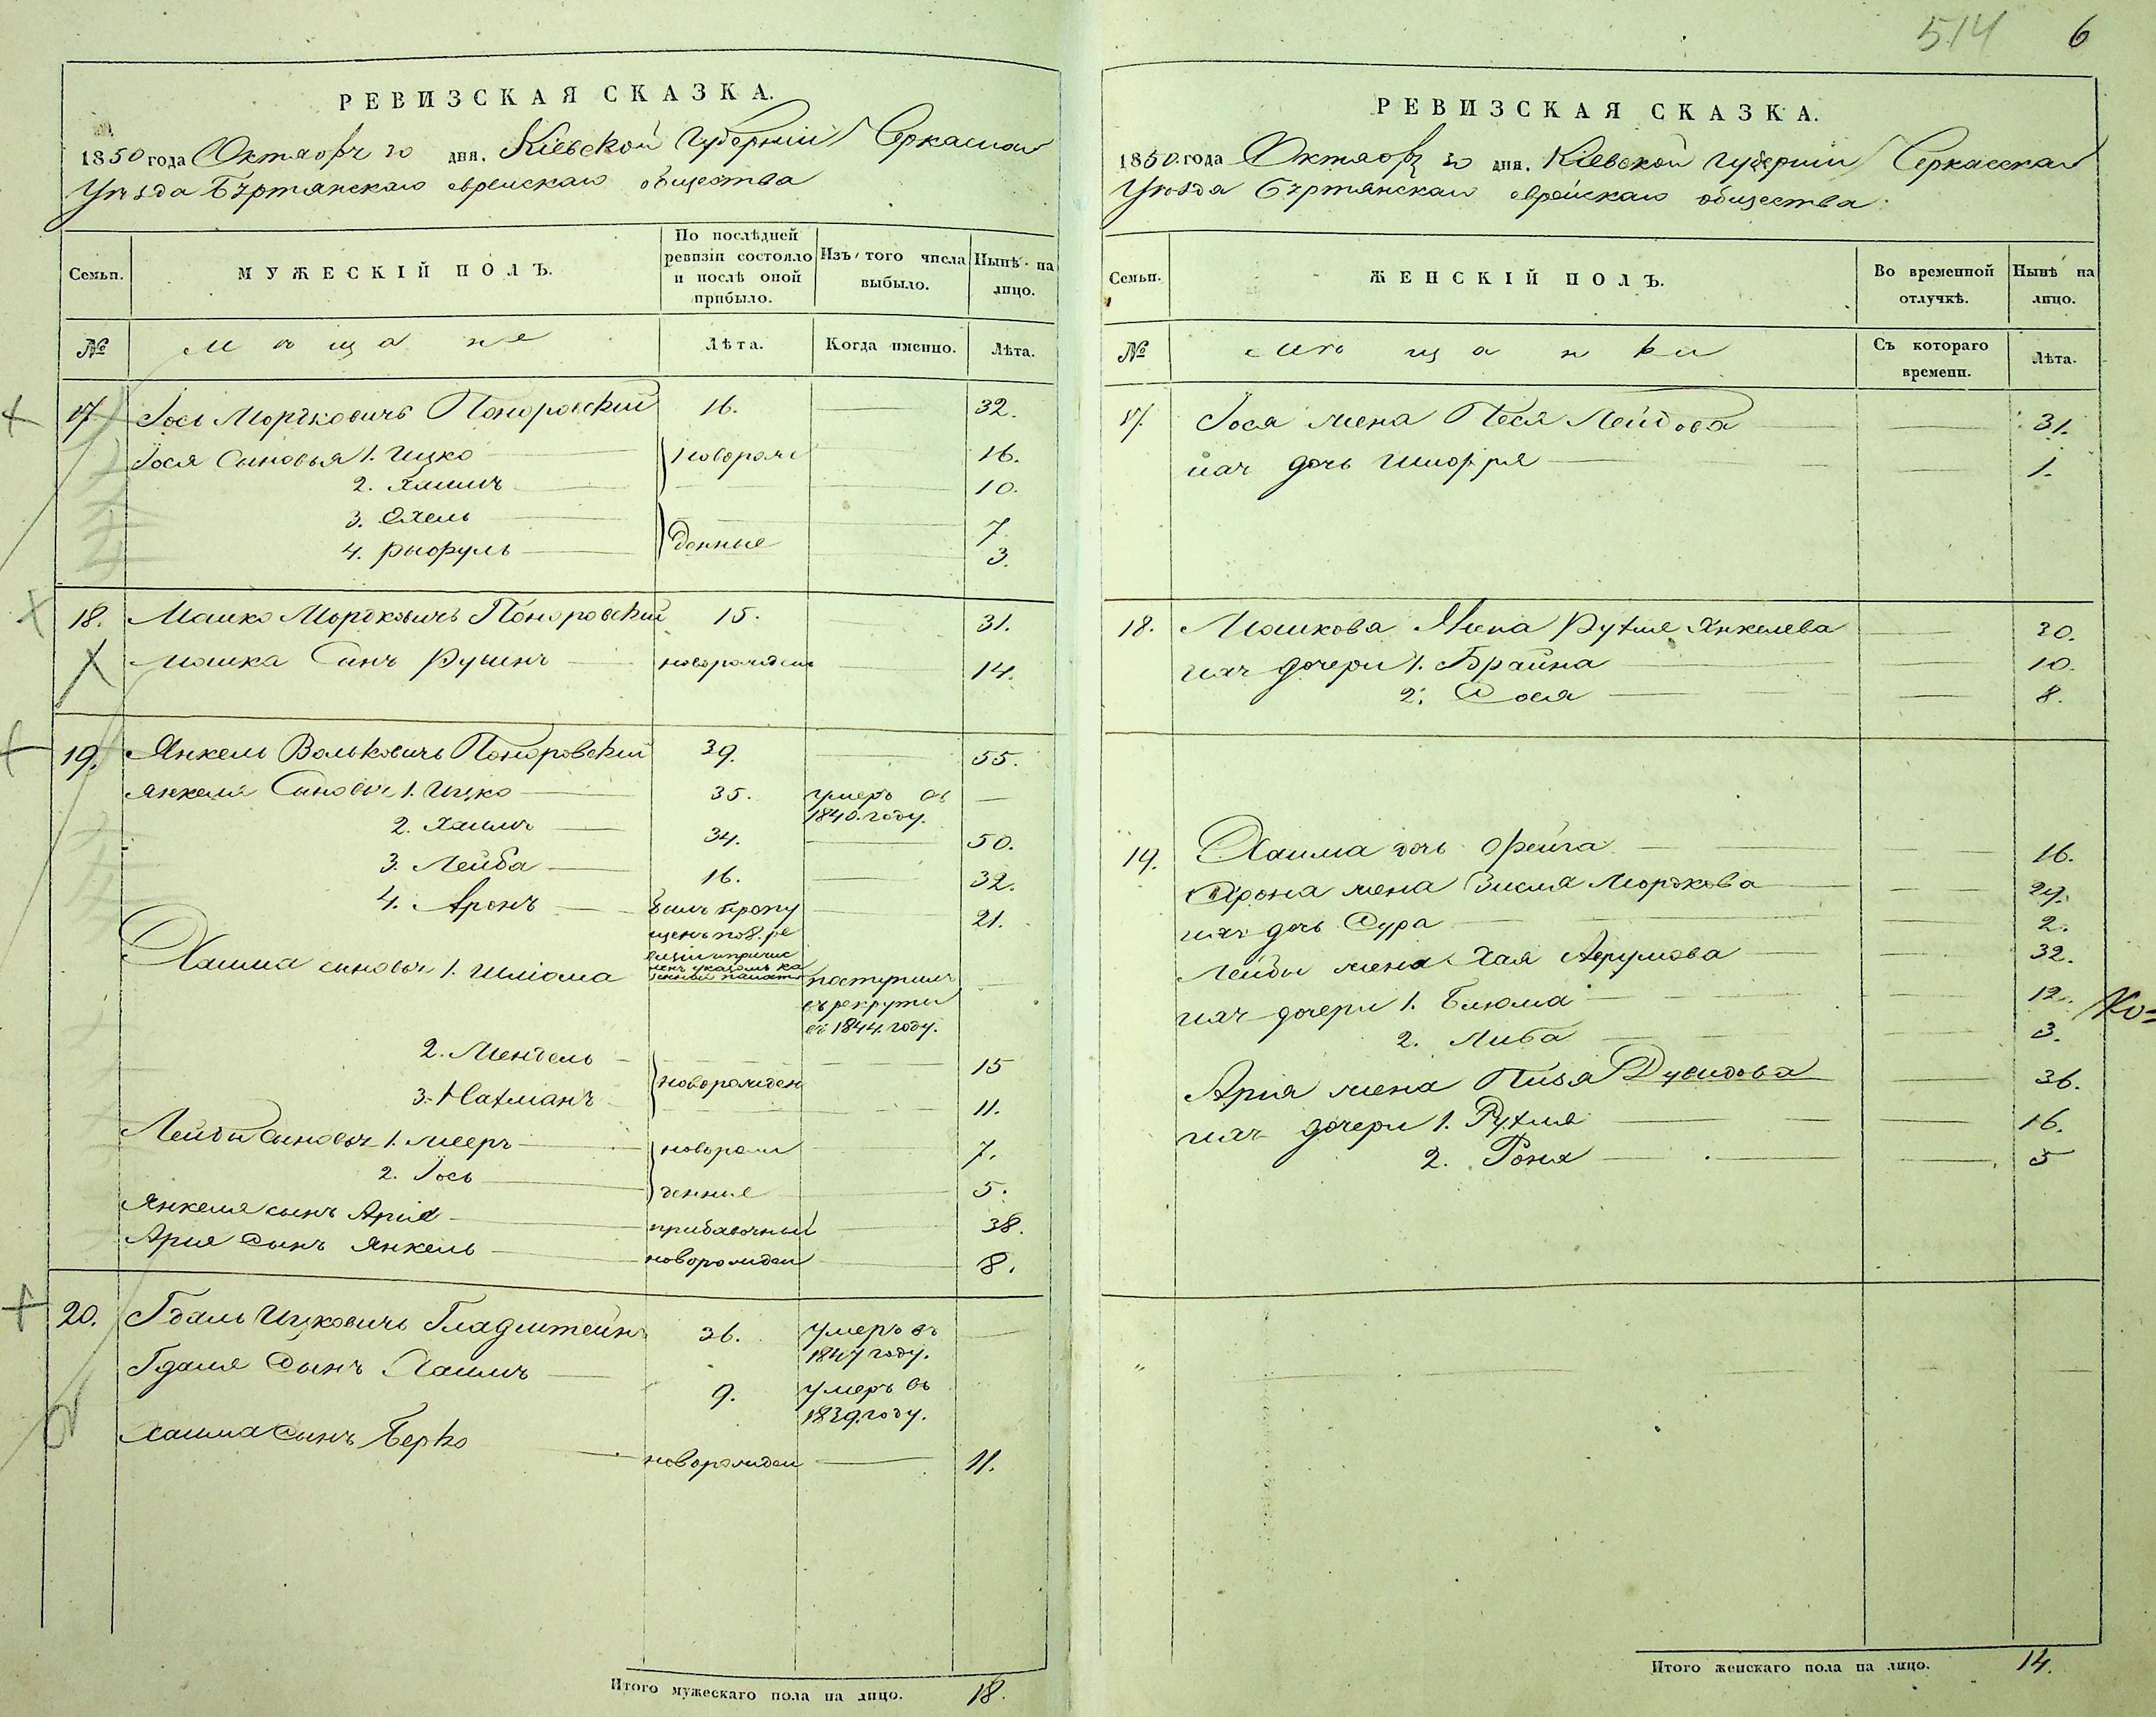 514 6
РЕВИЗСКАЯ СКАЗКА.
1850 года Октября 20 дня. Кіевской Губерніи Черкаскаго
Уѣзда Бѣртянскаго еврейскаго общества
Семьи. МУЖЕСКІЙ ПОЛЪ. По послѣдней ревизіи состояло и послѣ оной прибыло. Изъ того числа выбыло. Нынѣ на лицо.
№ Мѣщане Лѣта. Когда именно. Лѣта.
17 Іось Моръковичъ Поноровскій 16. 32.
Іося Сыновья 1. Ицко новорож 16.
2. Хаимъ 10.
3. Охель 7
4. Рыфуль денные 3.
18. Мошко Мордковичъ Поноровскій 15. 31.
Мошка Сынъ Рувинъ новорожден 14.
19. Янкель Вольковичъ Поноровскій 39. 55.
Янкеля Сыновья 1. Ицко 35. умеръ въ
1840. году.
2. Хаимъ 34. 50.
3. Лейба 16. 32.
4. Аронъ былъ пропу 21.
щенъ по 8. ре
визіи и причис
ленъ указомъ ка
зенной палаты
Хаима сыновья 1. Шліома поступилъ
въ рекруты
въ 1844. году.
2. Мендель 15
новорожден
3. Нахманъ 11.
Лейбы Сыновья 1. Мееръ новорож 7.
2. Іось денные 5.
Янкеля сынъ Арія прибавочный 38.
Арие Сынъ Янкель новорожден 8.
20. Гдаль Ицковичъ Гладштейнъ 36. умеръ въ
1847 году.
Гдаля Сынъ Хаимъ 9. умеръ въ
1839. году.
Хаима Сынъ Берко новорожден 11.
Итого мужескаго пола на лицо. 18.
РЕВИЗСКАЯ СКАЗКА.
1850 года Октября 20 дня. Кіевской Губерніи Черкасскаго
Уѣзда Бѣртянскаго еврейскаго общества.
Семьи. ЖЕНСКІЙ ПОЛЪ. Во временной отлучкѣ. Нынѣ на лицо.
№ Мѣщанки Съ котораго времени. Лѣта.
17. Іося жена Песя Лейбова 31.
ихъ дочь Шифря 1.
18. Мошкова Жена Рухля Янкелева 30.
ихъ дочери 1. Брайна 10.
2. Сося 8.
19. Хаима дочь Фейга 16.
Арона жена Зисля Мордкова 29.
ихъ дочь Сура 2.
Лейбы жена Хая 32.
ихъ дочери 1. Блюма 12.
2. Либа 3.
Арія жена Дувидова 36.
ихъ дочери 1. Рухля 16.
2. Роня 5
Итого женскаго пола на лицо. 14.